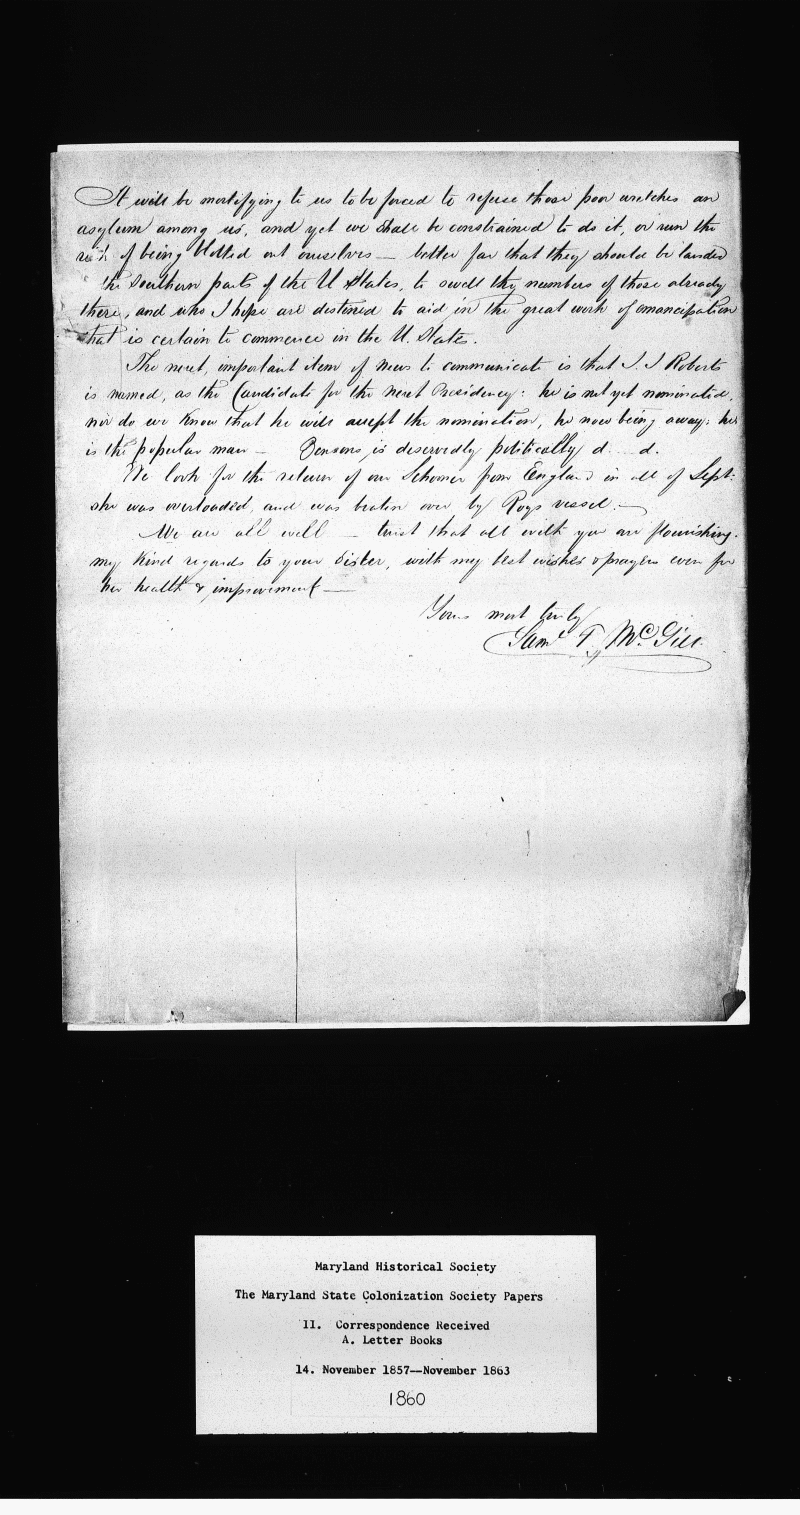 It will be mortifying to us to be forced to refuse those poor wretches an
asylum among us, and yet we shall be constrained to do it, or run the
risk of being blotted out ourselves — better far that they should be landed
the Southern parts of the U States, to swell the numbers of those already
there, and who I hope are destined to aid in the great work of emancipation
that is certain to commence in the U. States.
The next, important item of news to communicate is that J. J Roberts
is named, as the Candidate for the next Presidency: he is not yet nominated,
nor do we know that he will accept the nomination, he now being away: he
is the popular man — Benson is deservedly politically d....d.
We look for the return of our Schooner from England in all of Sept:
she was overloaded, and was beaten over by Roys vessel. —
We are all well — trust that all with you are flourishing.
my kind regards to your Sister, with my best wishes & prayers even for
her health & improvement —
Yours most truly
Saml T. McGill
Maryland Historical Society
The Maryland State Colonization Society Papers
11. Correspondence Received
A. Letter Books
14. November 1857--November 1863
1860